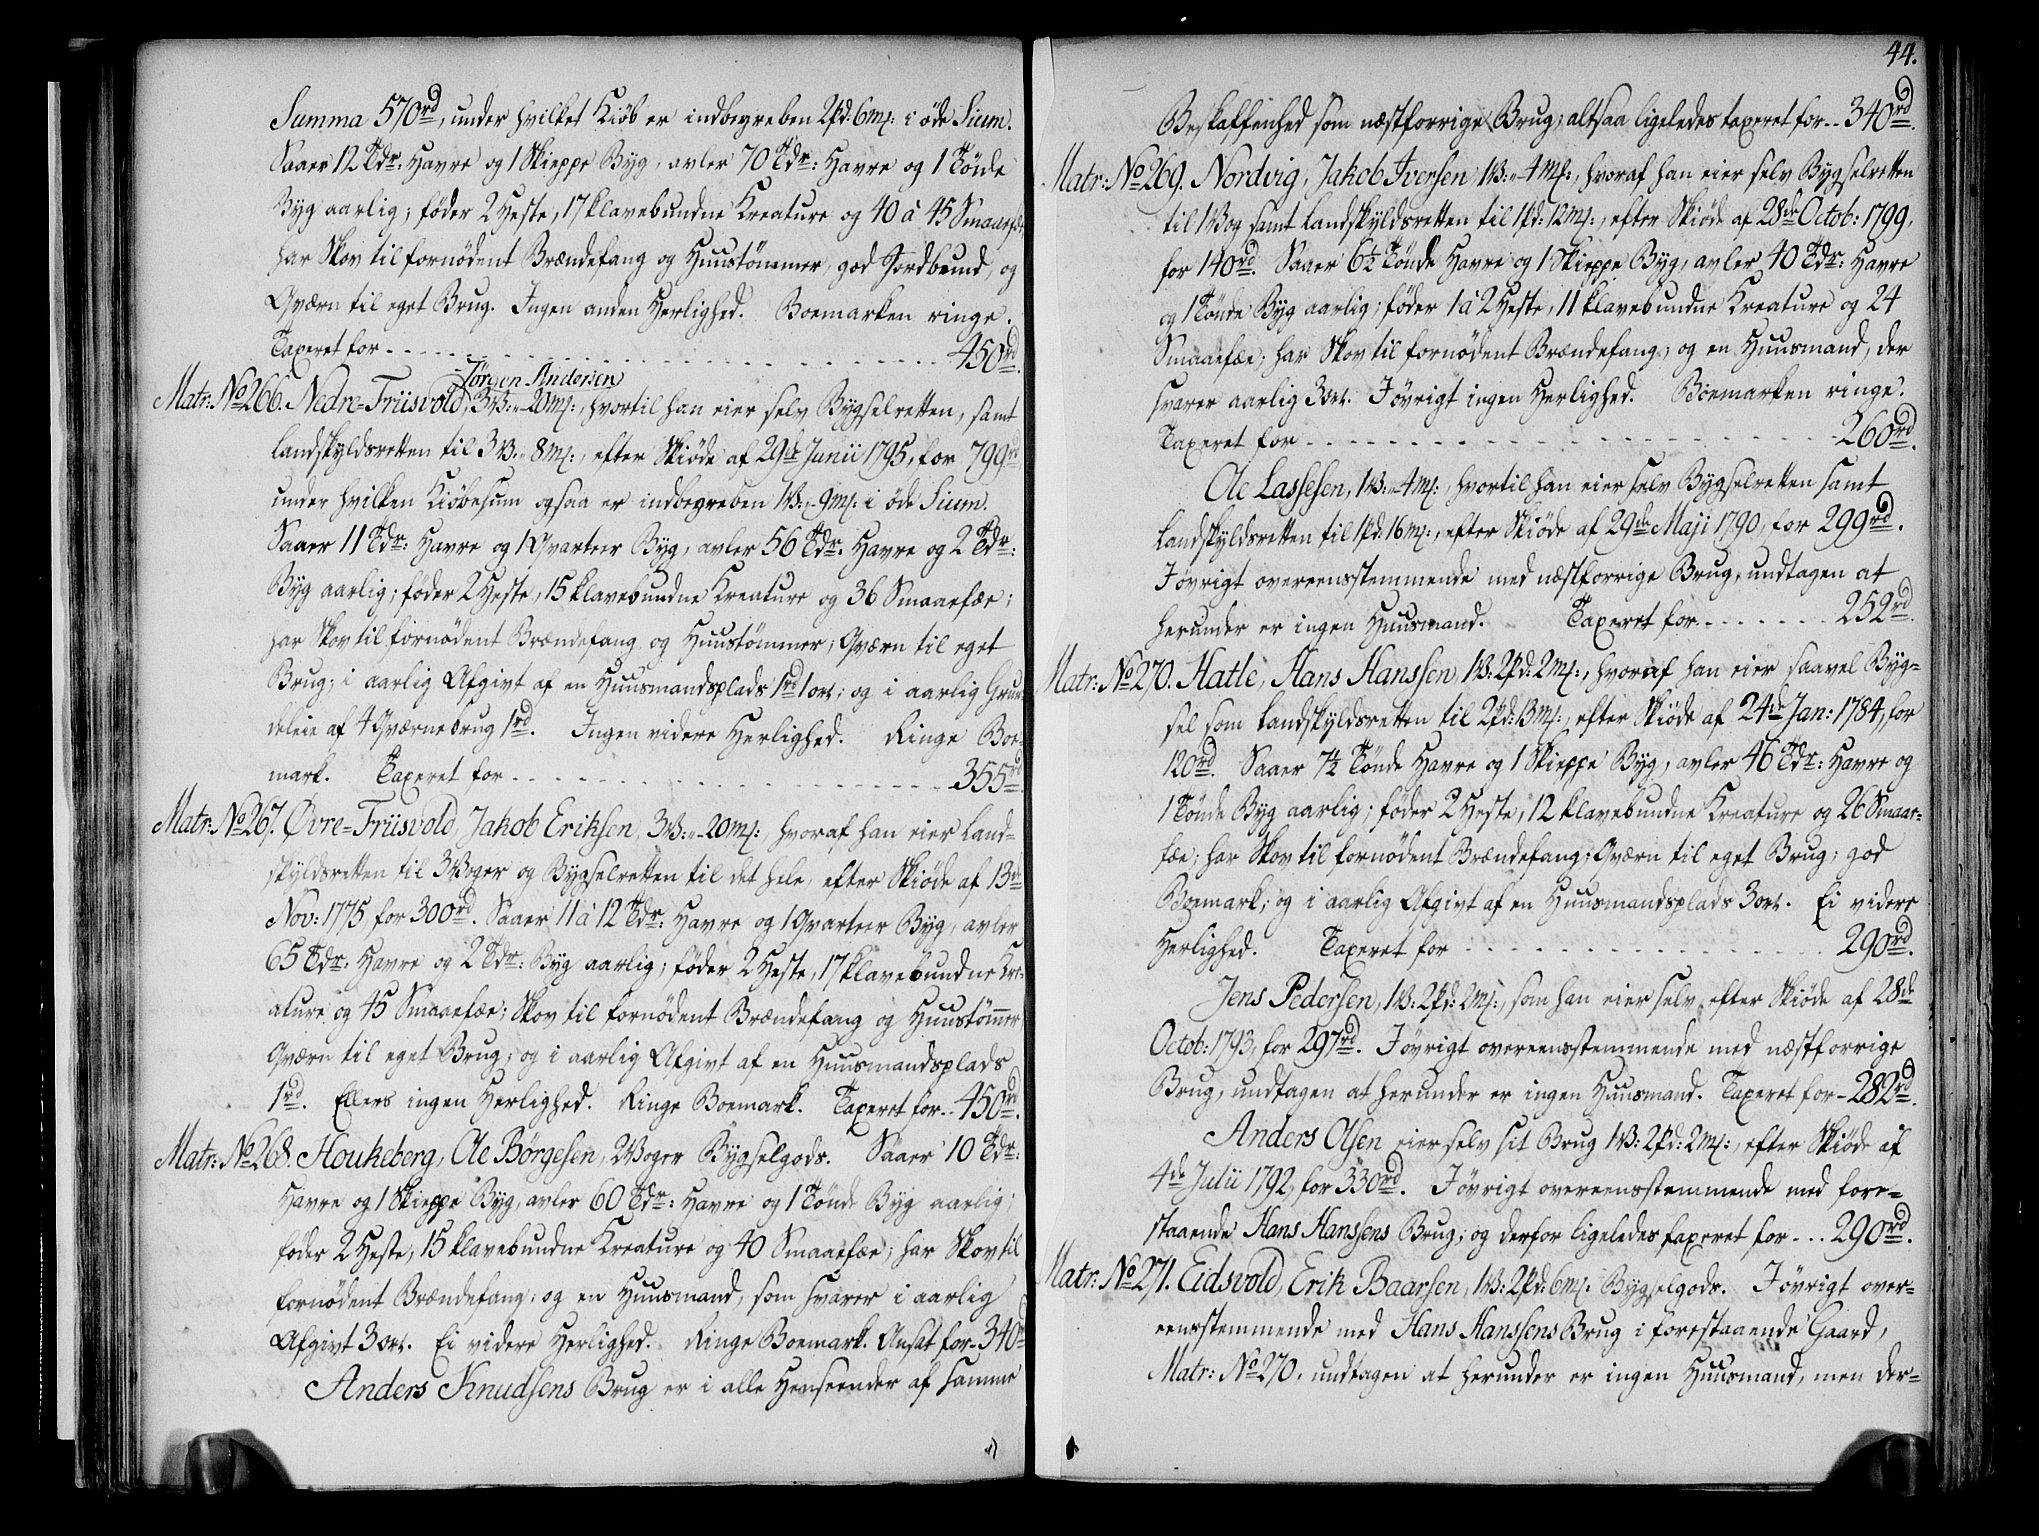 Summa 570rd, under hvilket Kiöb er indbegreben 2pd: 6mk: i öde Sium.
Saaer 12 Tdr: Havre og 1 Skieppe Byg, avler 70 Tdr: Havre og 1 Tönde
Byg aarlig; föder 2 Heste, 17 klavebundne Kreature og 40 à 45 Smaaefæ;
har Skov til fornödent Brændefang og Huustömmer, god Jordbund, og
Qværn til eget Brug. Ingen anden Herlighed. Boemarken ringe.
Taxeret for - - - 450rd.
Jörgen Andersen
Matr: No 266. Nedre=Friisvold, 3V: „ 20mk:, hvortil han eier selv Bygselretten, samt
Landskyldsretten til 3V: „ 8mk:, efter Skiöde af 29de Junii 1795, for 799rd
under hvilken Kiöbesum ogsaa er indbegreben 1V: „ 9mk: i öde Sium.
Saaer 11 Tdr: Havre og 1 Qvarteer Byg, avler 56 Tdr: Havre og 2 Tdr:
Byg aarlig; föder 2 Heste, 15 klavebundne Kreature og 36 Smaaefæe;
har Skov til fornödent Brændefang og Huustömmer; Qværn til eget
Brug; i aarlig Afgivt af en Huusmandsplads 1rd 1ort; og i aarlig Grun-
deleie af 4 Qværnebrug 1rd. Ingen videre Herlighed. Ringe Boe-
mark. Taxeret for - - - 355rd
Matr: No 267. Øvre=Friisvold, Jakob Eriksen, 3V: „ 20mk: hvoraf han eier Land-
skyldsretten til 3 Voger og Bygselretten til det hele, efter Skiöde af 13de
Nov: 1775 for 300rd. Saaer 11 à 12 Tdr: Havre og 1 Qvarteer Byg, avler
65 Tdr: Havre og 2 Tdr: Byg aarlig; föder 2 Heste, 17 klavebundne Kre-
ature og 45 Smaaefæe; Skov til fornödent Brændefang og Huustömmer,
Qværn til eget Brug; og i aarlig Afgivt af en Huusmandsplads
1rd. Ellers ingen Herlighed. Ringe Boemark. Taxeret for - - 450rd.
Matr: No 268. Houkeberg, Ole Börgesen, 2 Voger Bygselgods. Saaer 10 Tdr:
Havre og 1 Skieppe Byg, avler 60 Tdr: Havre og 1 Tönde Byg aarlig;
föder 2 Heste, 15 klavebundne Kreature og 40 Smaaefæe; har Skov til
fornödent Brændefang, og en Huusmand, som svarer i aarlig
Afgivt 3ort. Ei videre Herlighed. Ringe Boemark. Ansat for - 340rd
Anders Knudsens Brug er i alle Henseender af samme
44.
Beskaffenhed som næstforrige Brug; altsaa ligeledes taxeret for - - 340rd.
Matr: No 269. Nordvig, Jakob Iversen 1V: „ 4mk:, hvoraf han eier selv Bygselretten
til 1Vog samt Landskyldsretten til 1pd: 12mk:, efter Skiöde af 28de Octob: 1799,
for 140rd. Saaer 6½ Tönde Havre og 1 Skieppe Byg, avler 40 Tdr: Havre
og 1 Tönde Byg aarlig; föder 1 à 2 Heste, 11 klavebundne Kreature og 24
Smaaefæe; har Skov til fornödent Brændefang; og en Huusmand, der
svarer aarlig 3ort. I övrigt ingen Herlighed. Boemarken ringe.
Taxeret for - - - 260rd.
Ole Lassesen, 1V: „ 4mk:, hvortil han eier selv Bygselretten samt
Landskyldsretten til 1pd: 16mk:, efter Skiöde af 29de Maji 1790, for 299rd.
I övrigt overeensstemmende med næstforrige Brug, undtagen at
herunder er ingen Huusmand. Taxeret for - - - 252rd.
Matr: No 270. Hatle, Hans Hanssen, 1V: 2pd: 2mk:, hvoraf han eier saavel Byg=
sel som Landskyldsretten til 2pd: 13mk:, efter Skiöde af 24de Jan: 1784, for
120rd. Saaer 7½ Tönde Havre og 1 Skieppe Byg, avler 46 Tdr: Havre og
1 Tönde Byg aarlig; föder 2 Heste, 12 klavebundne Kreature og 26 Smaae-
fæe; har Skov til fornödent Brændefang; Qværn til eget Brug; god
Boemark; og i aarlig Afgivt af en Huusmandsplads 3ort. Ei videre
Herlighed. Taxeret for - - - 290rd.
Jens Pedersen, 1V: 2pd: 2mk:, som han eier selv efter Skiöde af 28de
Octob: 1793, for 297rd. I övrigt overeensstemmende med næstforrige
Brug, undtagen at herunder er ingen Huusmand. Taxeret for - 282rd.
Anders Olsen eier selv sit Brug 1V: 2pd: 2mk:, efter Skiöde af
4de Julii 1792, for 330rd. I övrigt overeensstemmende med fore=
staaende Hans Hanssens Brug; og derfor ligeledes taxeret for - - - 290rd.
Matr: No 271. Eidsvold, Erik Baarsen, 1V: 2pd: 6mk: Bygselgods. I övrigt over=
eensstemmende med Hans Hanssens Brug i forestaaende Gaard,
Matr: No 270, undtagen at herunder er ingen Huusmand, men der=